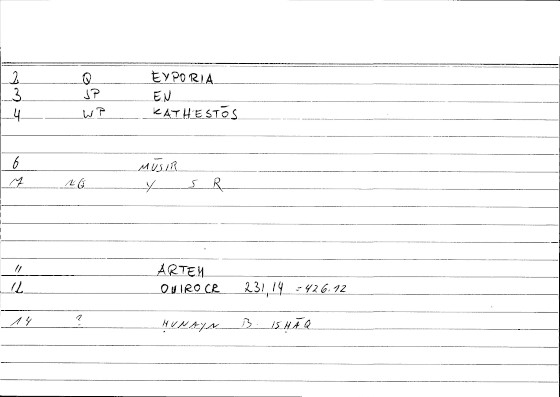 2 Q EYPORIA
3 JP EN
4 WP KATHESTŌS
6 MŪSIR
7 NQ Y S R
11 ARTEM
12 ONIROCR 231,14 =426.12
14 ? ḤUNAYN B. ISḤĀQ